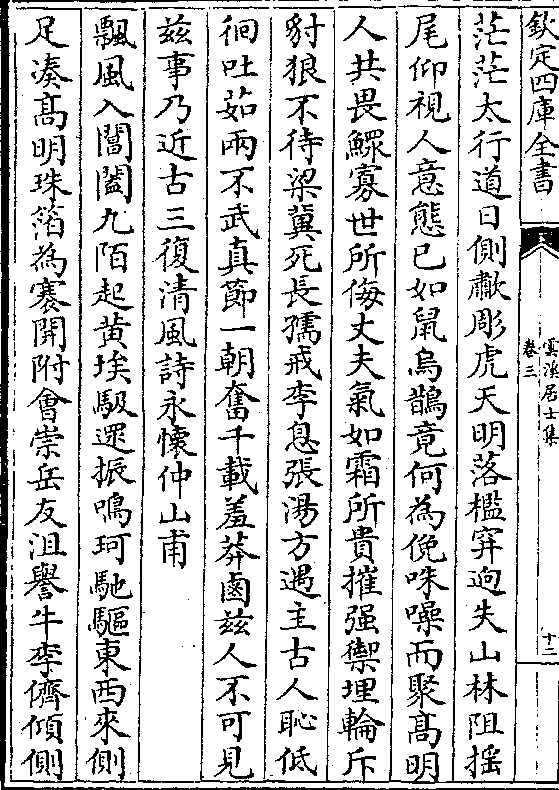 欽定四庫全書
雲溪居士集
卷三
十二
茫茫太行道日側歗彫虎天明落檻穽迥失山林阻揺
尾仰視人意態已如鼠烏鵲竟何為俛咮噪而聚高明
人共畏鰥寡世所侮丈夫氣如霜所貴摧强禦埋輪斥
豺狼不待梁冀死長孺戒李息張湯方遇主古人恥低
徊吐茹兩不武真節一朝奮千載羞莽鹵兹人不可見
兹事乃近古三復清風詩永懷仲山甫
飄風入閶闔九陌起黄埃馺遝振鳴珂馳驅東西來側
足凑高明珠箔為褰開附會崇岳友沮譽牛李儕傾側